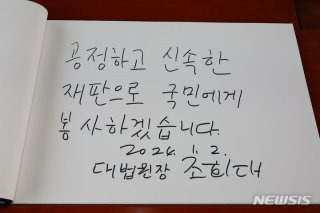 공정하고 신속한
재판으로 국민에게
봉사하겠습니다.
2026. 1. 2.
대법원장 조희대
NEWSIS